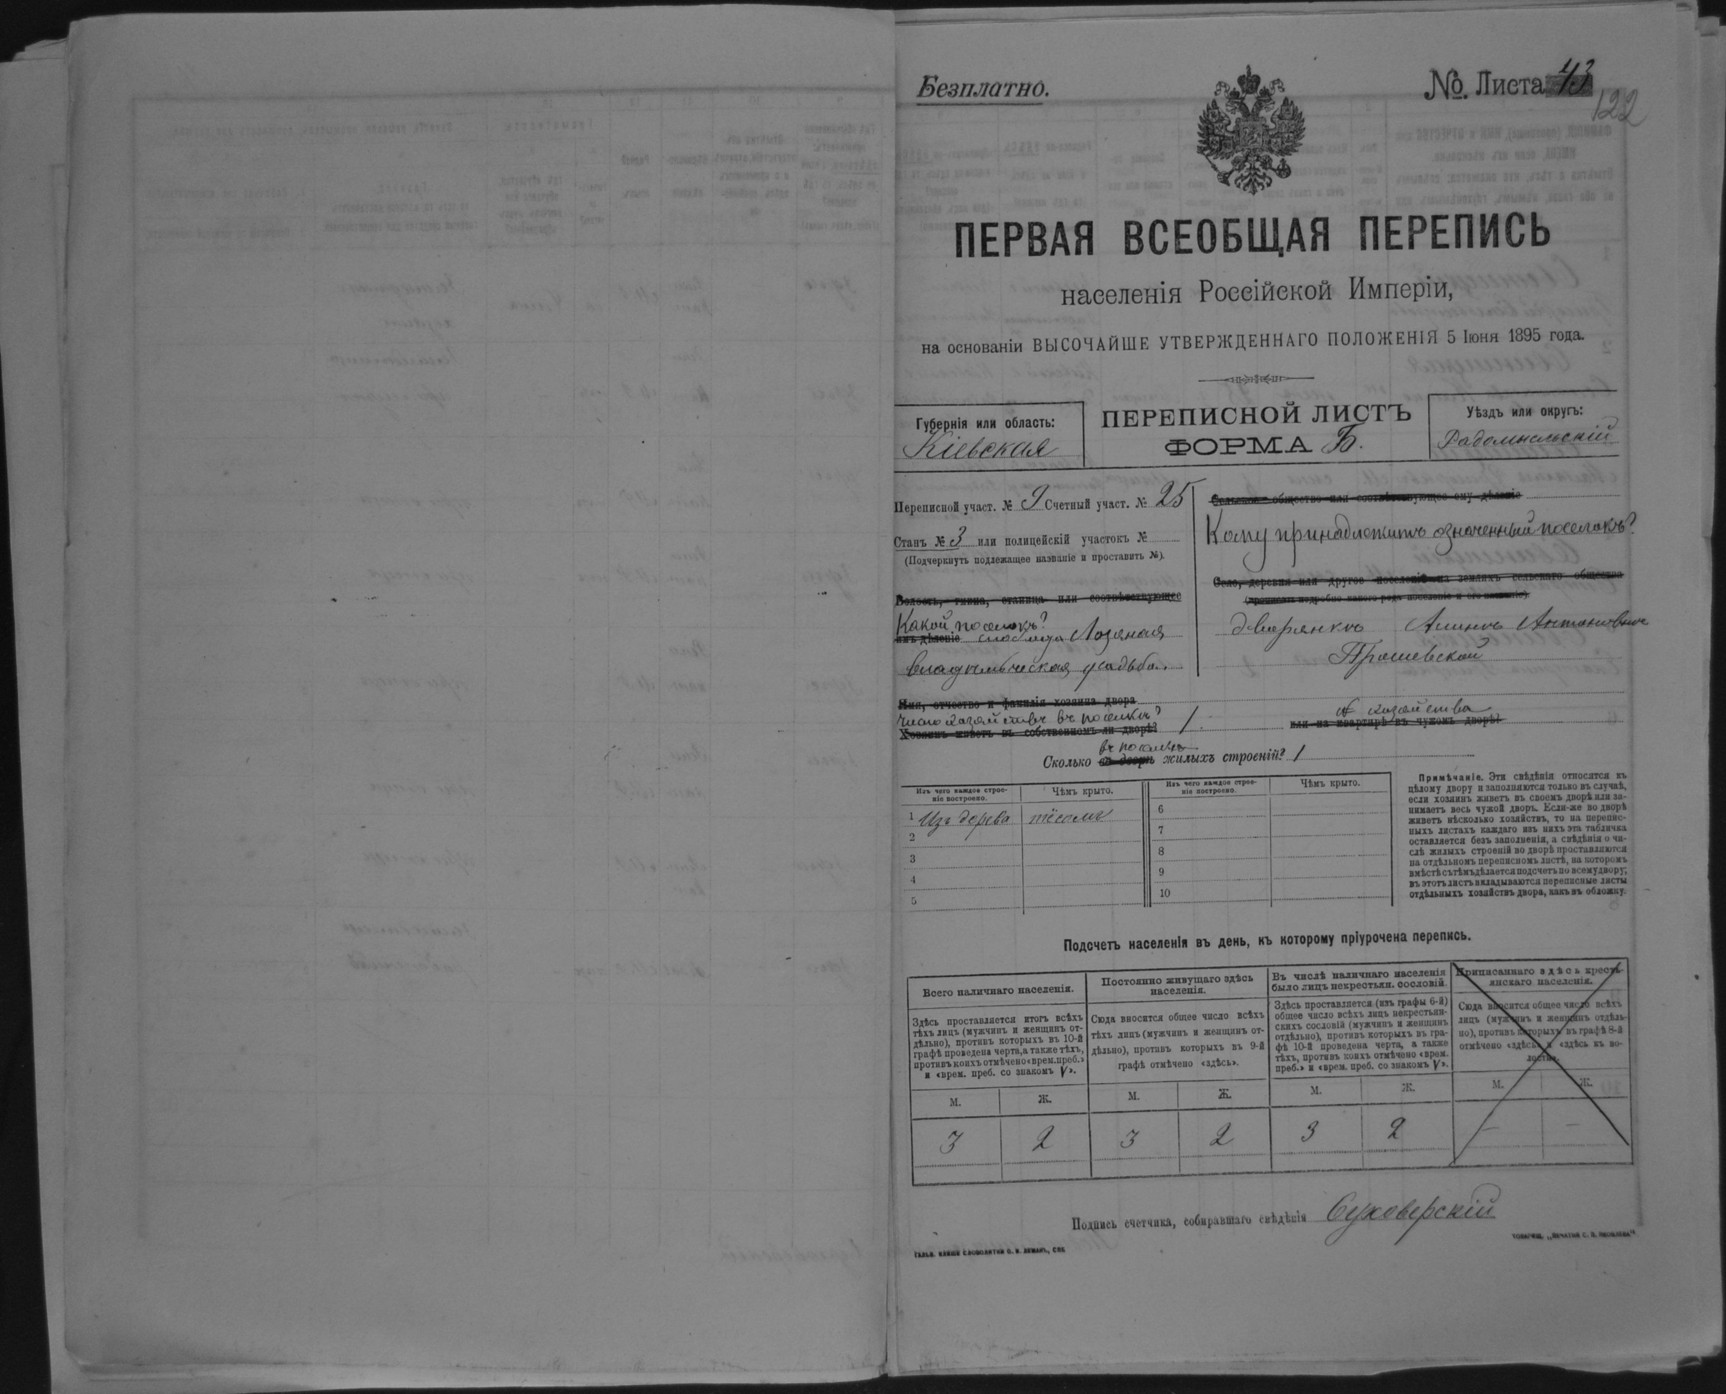 Безплатно.
№ Листа 43
122
ПЕРВАЯ ВСЕОБЩАЯ ПЕРЕПИСЬ
населенія Россійской Имперіи,
на основаніи ВЫСОЧАЙШЕ УТВЕРЖДЕННАГО ПОЛОЖЕНІЯ 5 Іюня 1895 года.
Губернія или область:
Кіевская
ПЕРЕПИСНОЙ ЛИСТЪ
ФОРМА Б.
Уѣздъ или округъ:
Радомысльскій
Переписной участ. № 9 Счетный участ. № 25
Станъ № 3 или полицейскій участокъ №
(Подчеркнуть подлежащее названіе и проставить №).
Волость, гмина, станица или соотвѣтствующее
Какой поселокъ?
имъ дѣленіе слобода Лозяная
владѣльческая усадьба.
Сельское общество или соотвѣтствующее ему дѣленіе
Кому принадлежитъ означенный поселокъ?
Село, деревня или другое поселеніе на земляхъ сельскаго общества
дворянкѣ Алинѣ Антоновнѣ
Имя, отчество и фамилія хозяина двора
Число хозяйствъ въ поселкѣ? 1
хозяйства
Хозяинъ живетъ въ собственномъ ли дворѣ? или на квартирѣ въ чужомъ дворѣ?
въ поселкѣ
Сколько во дворѣ жилыхъ строеній? 1
Изъ чего каждое строеніе построено. Чѣмъ крыто. Изъ чего каждое строеніе построено. Чѣмъ крыто.
1 Изъ дерева тёсомъ 6
2 7
3 8
4 9
5 10
Примѣчаніе. Эти свѣдѣнія относятся къ
цѣлому двору и заполняются только въ случаѣ,
если хозяинъ живетъ въ своемъ дворѣ или за-
нимаетъ весь чужой дворъ. Если-же во дворѣ
живетъ нѣсколько хозяйствъ, то на перепис-
ныхъ листахъ каждаго изъ нихъ эта табличка
оставляется безъ заполненія, а свѣдѣнія о чи-
слѣ жилыхъ строеній во дворѣ проставляются
на отдѣльномъ переписномъ листѣ, на которомъ
вмѣстѣ съ тѣмъ дѣлается подсчетъ по всему двору;
въ этотъ листъ вкладываются переписные листы
отдѣльныхъ хозяйствъ двора, какъ въ обложку.
Подсчетъ населенія въ день, къ которому пріурочена перепись.
Всего наличнаго населенія.
Здѣсь проставляется итогъ всѣхъ
тѣхъ лицъ (мужчинъ и женщинъ от-
дѣльно), противъ которыхъ въ 10-й
графѣ проведена черта, а также тѣхъ,
противъ коихъ отмѣчено «врем. преб.»
и «врем. преб. со знакомъ V».
М. Ж.
3 2
Постоянно живущаго здѣсь
населенія.
Сюда вносится общее число всѣхъ
тѣхъ лицъ (мужчинъ и женщинъ от-
дѣльно), противъ которыхъ въ 9-й
графѣ отмѣчено «здѣсь».
М. Ж.
3 2
Въ числѣ наличнаго населенія
было лицъ некрестьян. сословій.
Здѣсь проставляется (изъ графы 6-й)
общее число всѣхъ лицъ некрестьян-
скихъ сословій (мужчинъ и женщинъ
отдѣльно), противъ которыхъ въ гра-
фѣ 10-й проведена черта, а также
тѣхъ, противъ коихъ отмѣчено «врем.
преб.» и «врем. преб. со знакомъ V».
М. Ж.
3 2
Приписаннаго здѣсь кресть-
янскаго населенія.
Сюда вносится общее число всѣхъ
лицъ (мужчинъ и женщинъ отдѣль-
но), противъ которыхъ въ графѣ 8-й
отмѣчено «здѣсь» и «здѣсь въ во-
лости».
М. Ж.
– –
Подпись счетчика, собиравшаго свѣдѣнія Суховерскій